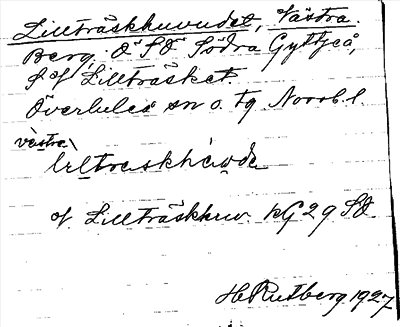 Lillträskhuvudet, Västra.
Berg. Ö SÖ Södra Gyttjeå,
S of Lillträsket.
Överluleå sn o. tg Norrb. l.
västra
lıltrɛskhɵvɵdə
of. Lillträskhuv. kG 29 SÖ.
H Rutberg 1927